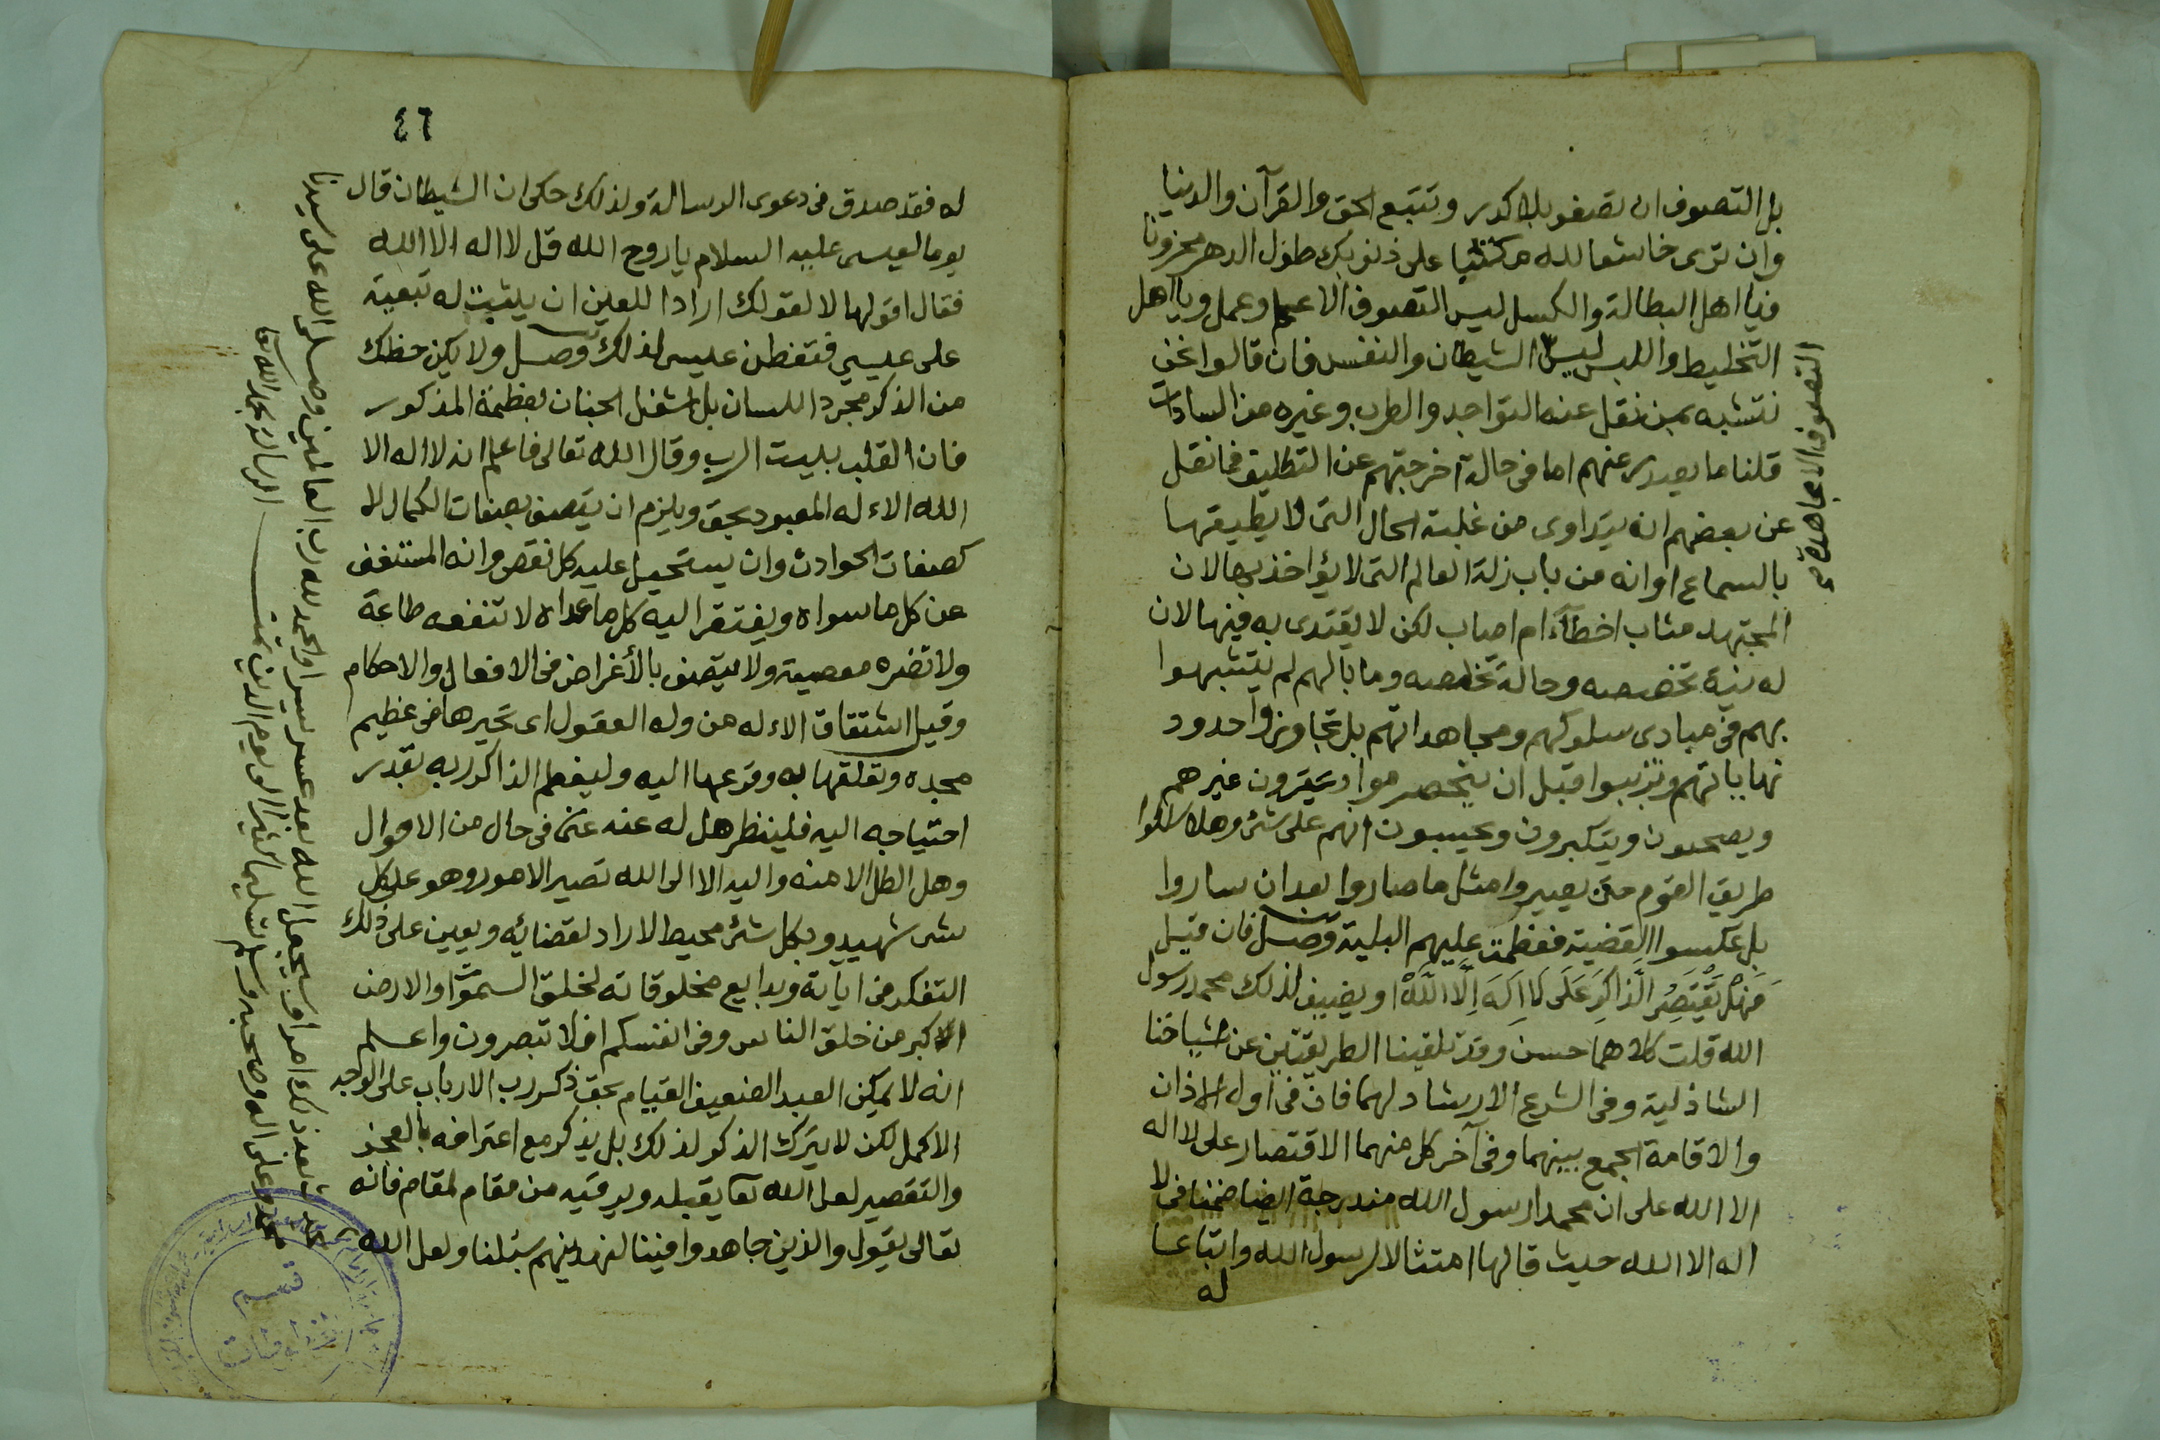 بل التصوف ان تصفو بلا كدر وتتبع الحق والقرآن والدينا
وان ترى خاشعا لله مكتئبا على ذنوبك طول الدهر محزونا
فيا اهل البطالة والكسل ليس التصوف الا علم وعمل ويا اهل
التخليط واللبس ليس الشيطان والنفس فان قالوا نحن
نتشبه بمن نقل عنه التواجد والطرب وغيره من السادات
قلنا ما يصدر عنهم اما في حالة اخرجتهم عن التكليف فما نقل
عن بعضهم انه يتداوى من غلبة الحال التى لا يطيقها
بالسماع او انه من باب زلة العالم التى لا يؤاخذ بها لان
المجتهد مثاب اخطأ ام اصاب لكن لا يقتدى به فيها لان
له نية تخصصه وحالة تخلصه وما بالهم لم يتشبهوا
بهم فى مبادى سلوكهم ومجاهداتهم بل تجاوزوا حدود
نهاياتهم وتزببوا قبل ان يتحصرموا يترون غيرهم
ويصحبون ويتكبرون ويحسبون انهم على شئ وهلا سلكوا
طريق القوم حتى يصيروا مثل ما صاروا بعد ان ساروا
بل عكسوا القضية فعظمت عليهم البلية وصل فان قيل
فهل يقتصر الذاكر على لا اله الا الله او يضيف لذلك محمد رسول
الله قلت كلاهما حسن وقد تلقينا الطريقتين عن مشياخنا
الشاذلية وفى الشرع الارشاد لهما فان فى اول الاذان
والاقامة الجمع بينهما وفى آخر كل منهما الاقتصار على لا اله
الا الله على ان محمدا رسول الله مندرجة ايضا ضمنا فى لا
اله الا الله حيث قالها امتثالا لرسول الله واتباعا
له
التصوف الا مجاهدة صح
٤٦
له فقد صدق فى دعوى الرسالة ولذلك حكى ان الشيطان قال
يوما لعيسى عليه السلام يا روح الله قل لا اله الا الله
فقال اقولها لا لقولك اراد اللعين ان يثبت له تبعية
على عيسى فتفطن عيسى لذلك وصل ولا يكن حظك
من الذكر مجرد اللسان بل اشغل الجنان بعظمة المذكور
فان القلب بيت الرب وقال الله تعالى فاعلم انه لا اله الا
الله الاله المعبود بحق ويلزم ان يتصف بصفات الكمال لا
كصفات الحوادث وان يستحيل عليه كل نقص وانه المستغنى
عن كل ما سواه ويفتقر اليه كل ما عداه لا تنفعه طاعة
ولا تضره معصية ولا يتصف بالأغراض فى الافعال والاحكام
وقيل اشتقاق الاله من وله العقول اى تحيرها فى عظيم
مجده وتعلقها به وفزعها اليه وليعظم الذاكر ربه بقدر
احتياجه اليه فلينظر هل له عنه غنى فى حال من الاحوال
وهل الكل الا منه واليه الا الى الله تصير الامور وهو على كل
شئ شهيد وبكل شئ محيط لا راد لقضائه ويعين على ذلك
التفكر فى اياته وبدايع مخلوقاته لخلق السموات والارض
اكبر من خلق الناس وفى انفسكم افلا تبصرون واعلم
انه لا يمكن العبد الضعيف القيام بحق ذكر رب الارباب على الوجه
الاكمل لكن لا يترك الذكر لذلك بل يذكر مع اعترافه بالعجز
والتقصير لعل الله تعا يقبله ويرقيه من مقام لمقام فانه
تعالى يقول والذين جاهدوا فينا لنهدينهم سبلنا ولعل الله
يحدث بعد ذلك امرا وسيجعل الله بعد عسر يسرا والحمد لله رب العالمين وصلى الله على سيدنا
محمد وعلى اله وصحبه وسلم تسليما كثيرا الى يوم الدين تمت الرسالة بحمد الله تعا
قسم